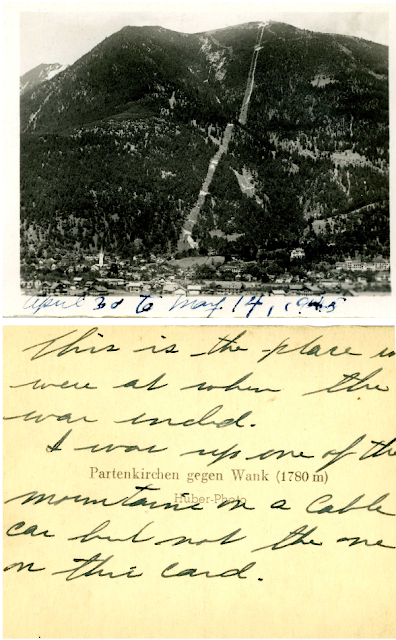 April 3d to May 14, 1945
This is the place w
were at when the
war ended.
I was up one of the
Partenkirchen gegen Wank (1780 m)
Huber-Photo
mountains in a Cable
car but not the one
on this card.